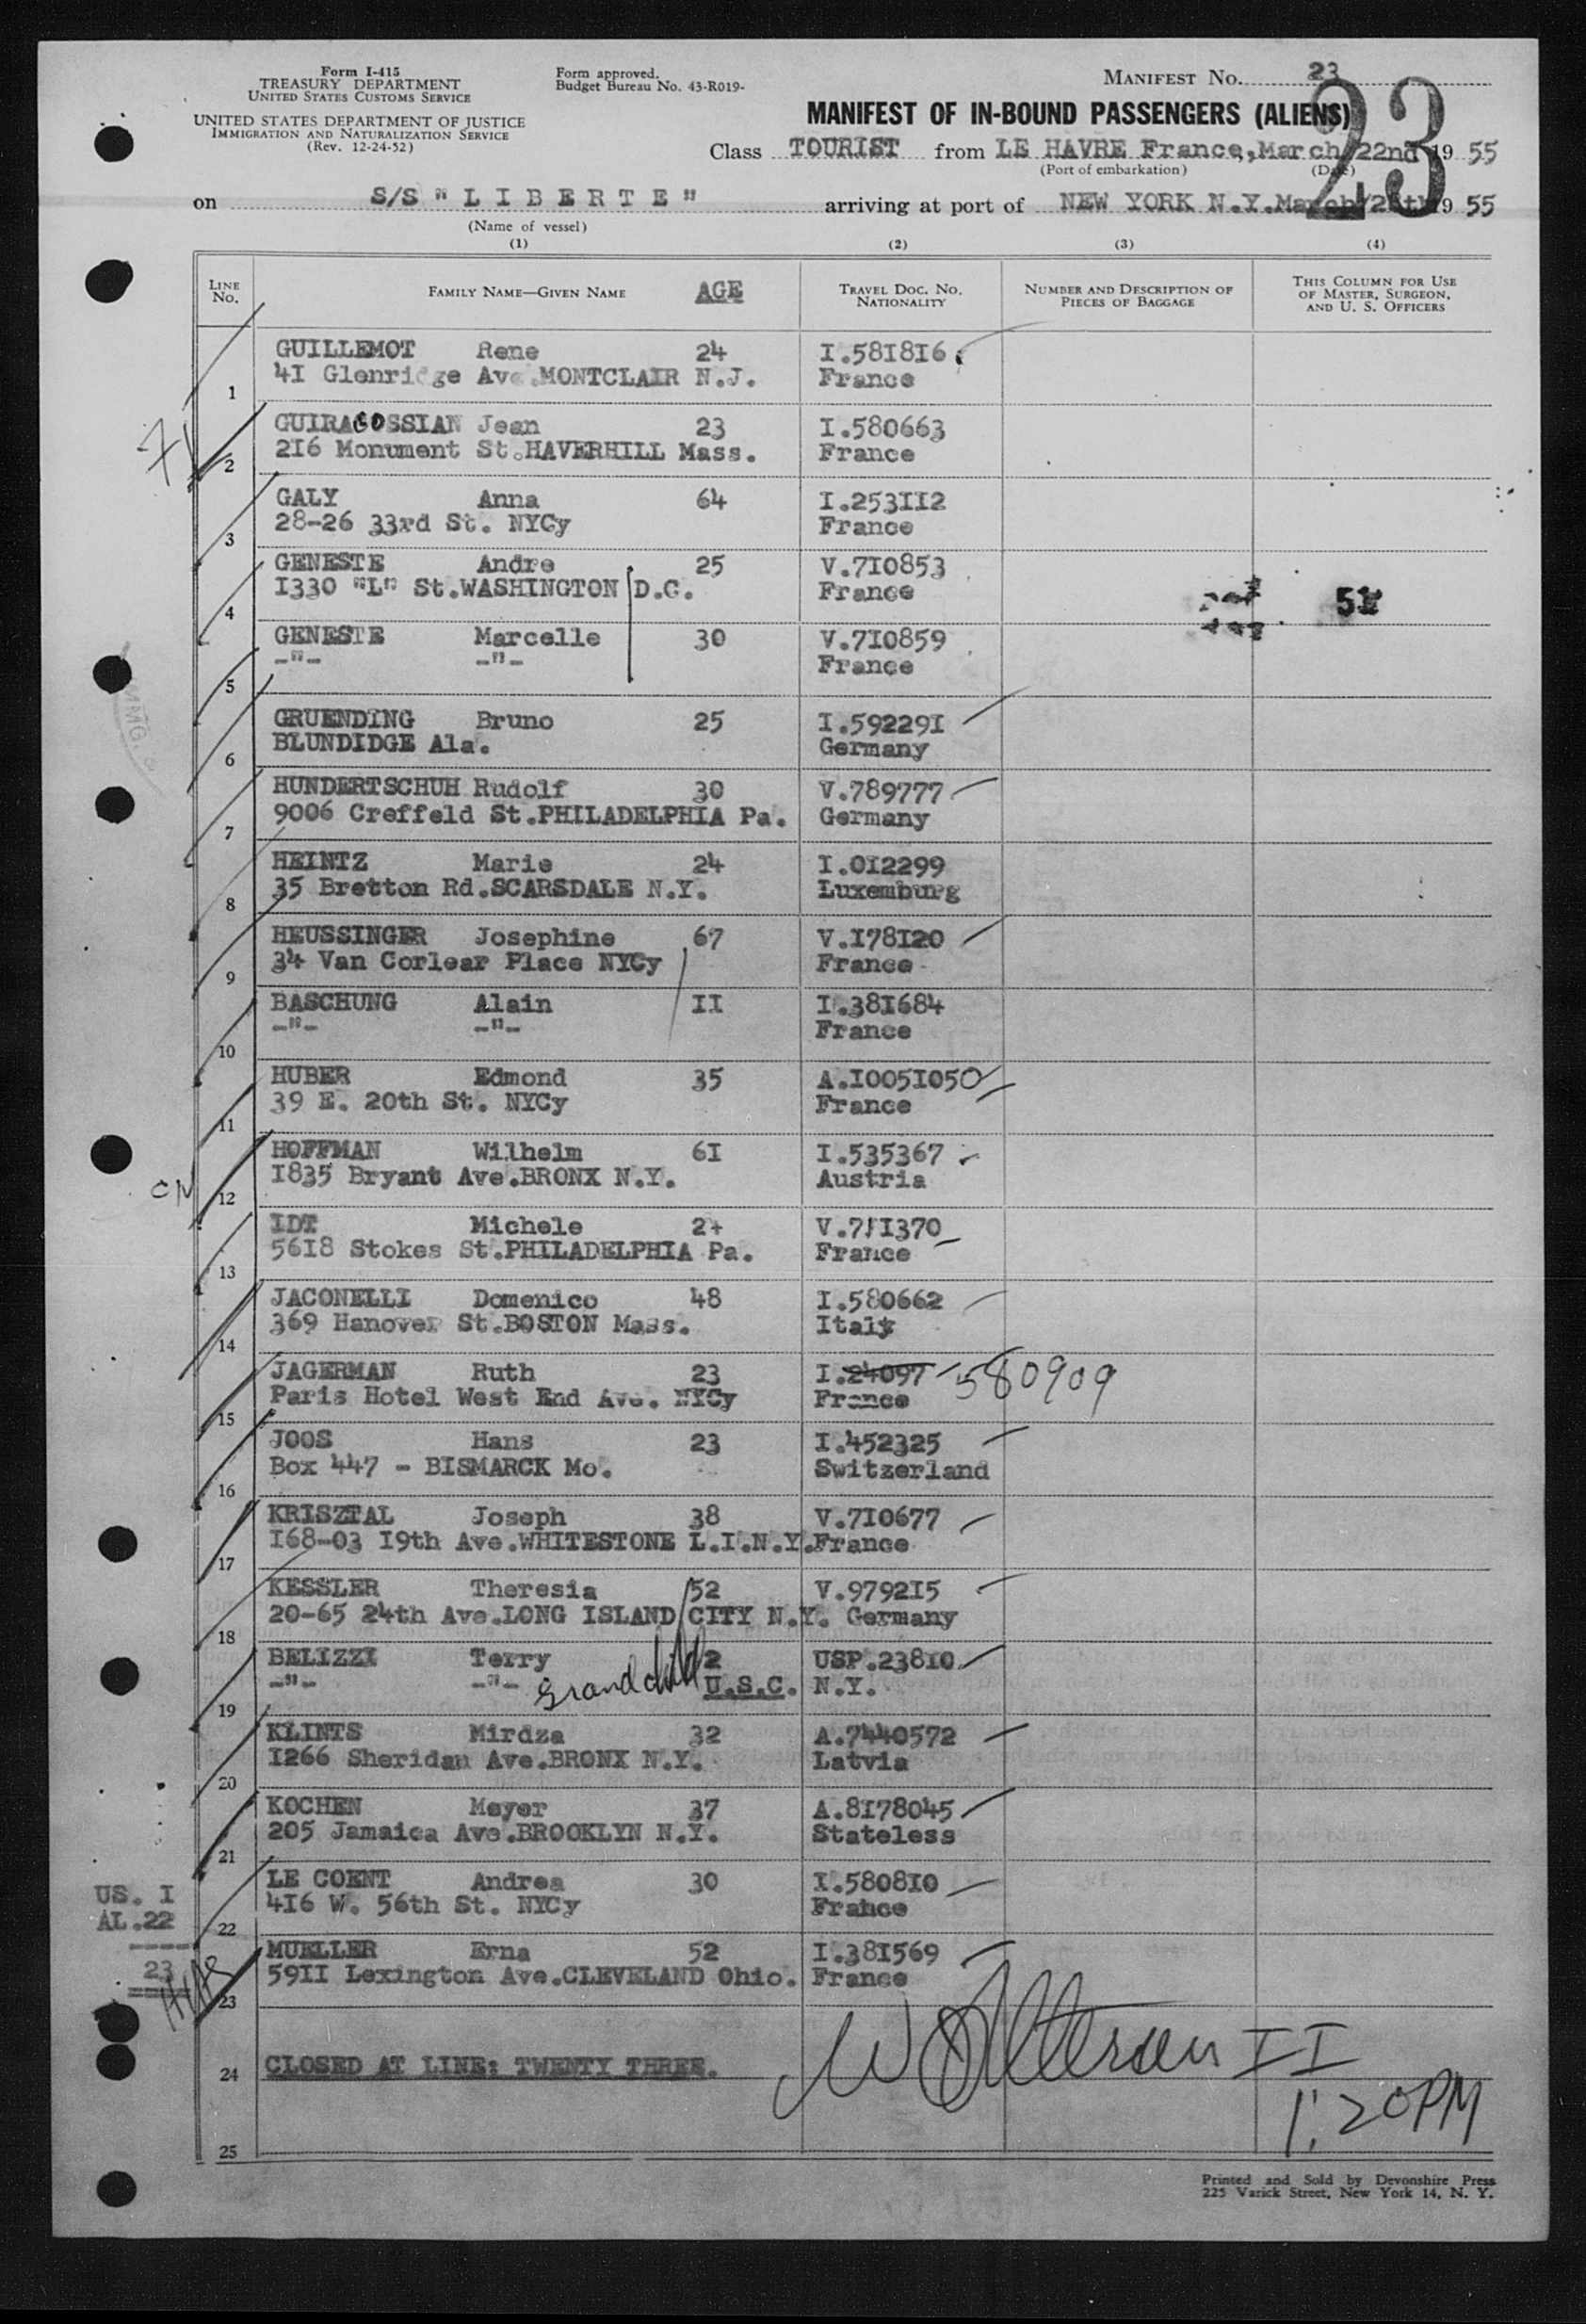 Form I-415
TREASURY DEPARTMENT
UNITED STATES CUSTOMS SERVICE
UNITED STATES DEPARTMENT OF JUSTICE
IMMIGRATION AND NATURALIZATION SERVICE
(Rev. 12-24-52)
Form approved.
Budget Bureau No. 43-R019-
MANIFEST No. 23
23
MANIFEST OF IN-BOUND PASSENGERS (ALIENS)
Class TOURIST from LE HAVRE France, March/22nd 1955
(Port of embarkation) (Date)
on S/S "LIBERTE" arriving at port of NEW YORK N.Y. 1955
(Name of vessel)
(1) (2) (3) (4)
LINE No. FAMILY NAME—GIVEN NAME AGE TRAVEL DOC. NO. NATIONALITY NUMBER AND DESCRIPTION OF PIECES OF BAGGAGE THIS COLUMN FOR USE OF MASTER, SURGEON, AND U. S. OFFICERS
GUILLEMOT Rene 24 I.581816
1 41 Glenridge Ave.MONTCLAIR N.J. France
GUIRAGOSSIAN Jean 23 I.580663
2 216 Monument St.HAVERHILL Mass. France
GALY Anna 64 I.253112
3 28-26 33rd St. NYCy France
GENESTE Andre 25 V.710853
4 1330 "L" St.WASHINGTON D.C. France
GENESTE Marcelle 30 V.710859
5 -"- -"- France
GRUENDING Bruno 25 I.592291
6 BLUNDIDGE Ala. Germany
HUNDERTSCHUH Rudolf 30 V.789777
7 9006 Creffeld St.PHILADELPHIA Pa. Germany
HEINTZ Marie 24 I.012299
8 35 Bretton Rd.SCARSDALE N.Y. Luxemburg
HEUSSINGER Josephine 67 V.178120
9 34 Van Corlear Place NYCy France
BASCHUNG Alain II I.381684
10 -"- -"- France
HUBER Edmond 35 A.10051050
11 39 E. 20th St. NYCy France
HOFFMAN Wilhelm 61 I.535367
12 1835 Bryant Ave.BRONX N.Y. Austria
IDT Michele V.711370
13 5618 Stokes St.PHILADELPHIA Pa. France
JACONELLI Domenico 48 I.580662
14 369 Hanover St.BOSTON Mass. Italy
JAGERMAN Ruth 23 I.24097 580909
15 Paris Hotel West End Ave. NYCy France
JOOS Hans 23 I.452325
16 Box 447 - BISMARCK Mo. Switzerland
KRISZTAL Joseph 38 V.710677
17 168-03 19th Ave.WHITESTONE L.I.N.Y. France
KESSLER Theresia 52 V.979215
18 20-65 24th Ave.LONG ISLAND CITY N.Y. Germany
BELIZZI Terry 2 USP.23810
19 -"- -"- Grandchild U.S.C. N.Y.
KLINTS Mirdza 32 A.7440572
20 1266 Sheridan Ave.BRONX N.Y. Latvia
KOCHEN Meyer 37 A.8178045
21 205 Jamaica Ave.BROOKLYN N.Y. Stateless
LE COENT Andrea 30 I.580810
22 416 W. 56th St. NYCy France
MUELLER Erna 52 I.381569
23 5911 Lexington Ave.CLEVELAND Ohio. France
US. I
AL.22
23
24 CLOSED AT LINE: TWENTY THREE.
II
1:20PM
25
Printed and Sold by Devonshire Press
225 Varick Street, New York 14, N. Y.